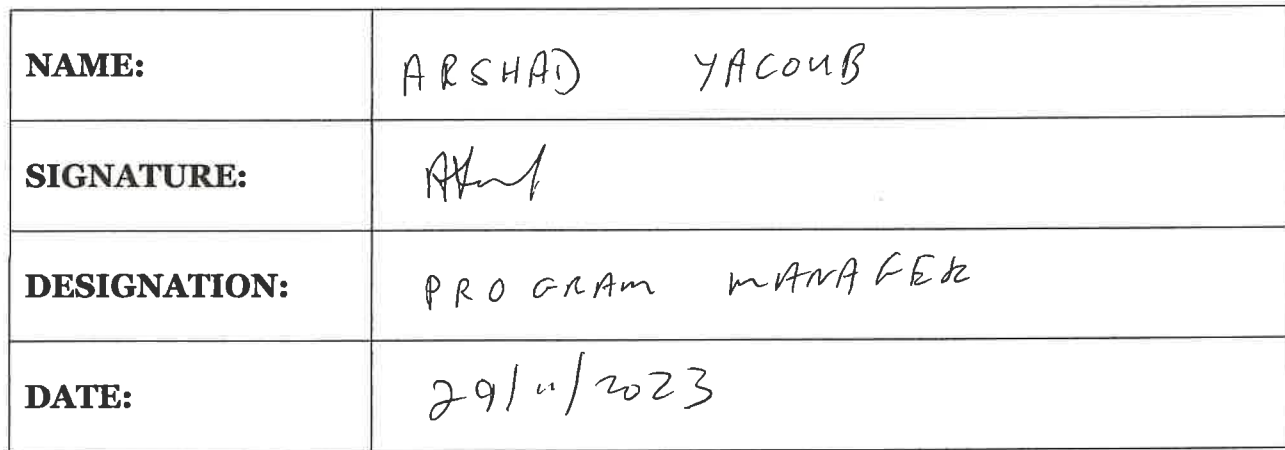 NAME: ARSHAD YACOUB
SIGNATURE:
DESIGNATION: PROGRAM MANAGER
DATE: 29/11/2023